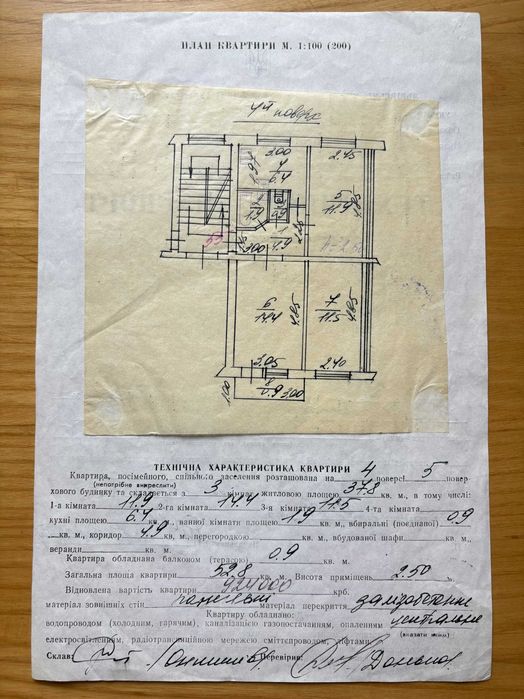 ПЛАН КВАРТИРИ М. 1:100 (200)
4й поверх
3.00
2.45
4
6.4
5
11.9
4.85
1.9
0.9
1
4.9
2.20
3.00
55
6
14.4
4.85
7
11.5
4.85
3.05
2.40
8
0.9
3.00
1.00
ТЕХНІЧНА ХАРАКТЕРИСТИКА КВАРТИРИ
Квартира, посімейного, спільного заселення розташована на 4 поверсі 5 повер-
(непотрібне викреслити)
хового будинку та складається з 3 кімнат житловою площею 37.8 кв. м., в тому числі:
1-а кімната 11.9 2-га кімната 14.4 3-я кімната 11.5 4-та кімната
кухні площею 6.4 кв. м., ванної кімнати площею 1.9 кв. м., вбиральні (поєднаної) 0.9
кв. м., коридор 4.9 кв. м., перегородкою кв. м., вбудованої шафи кв. м.,
веранди кв. м.
Квартира обладнана балконом (терасою) 0.9 кв. м.
Загальна площа квартири 52.8 кв. м. Висота приміщень 2.50 м.
Відновлена вартість квартири крб.
матеріал зовнішніх стін панельні матеріал перекриття залізобетонне
Квартиру обладнано:
водопроводом (холодним, гарячим), каналізацією газопостачанням, опаленням центральне
(вказати яким)
електросвітленням, радіотрансляційною мережею сміттєпроводом, ліфтами
Склав: Перевірив: